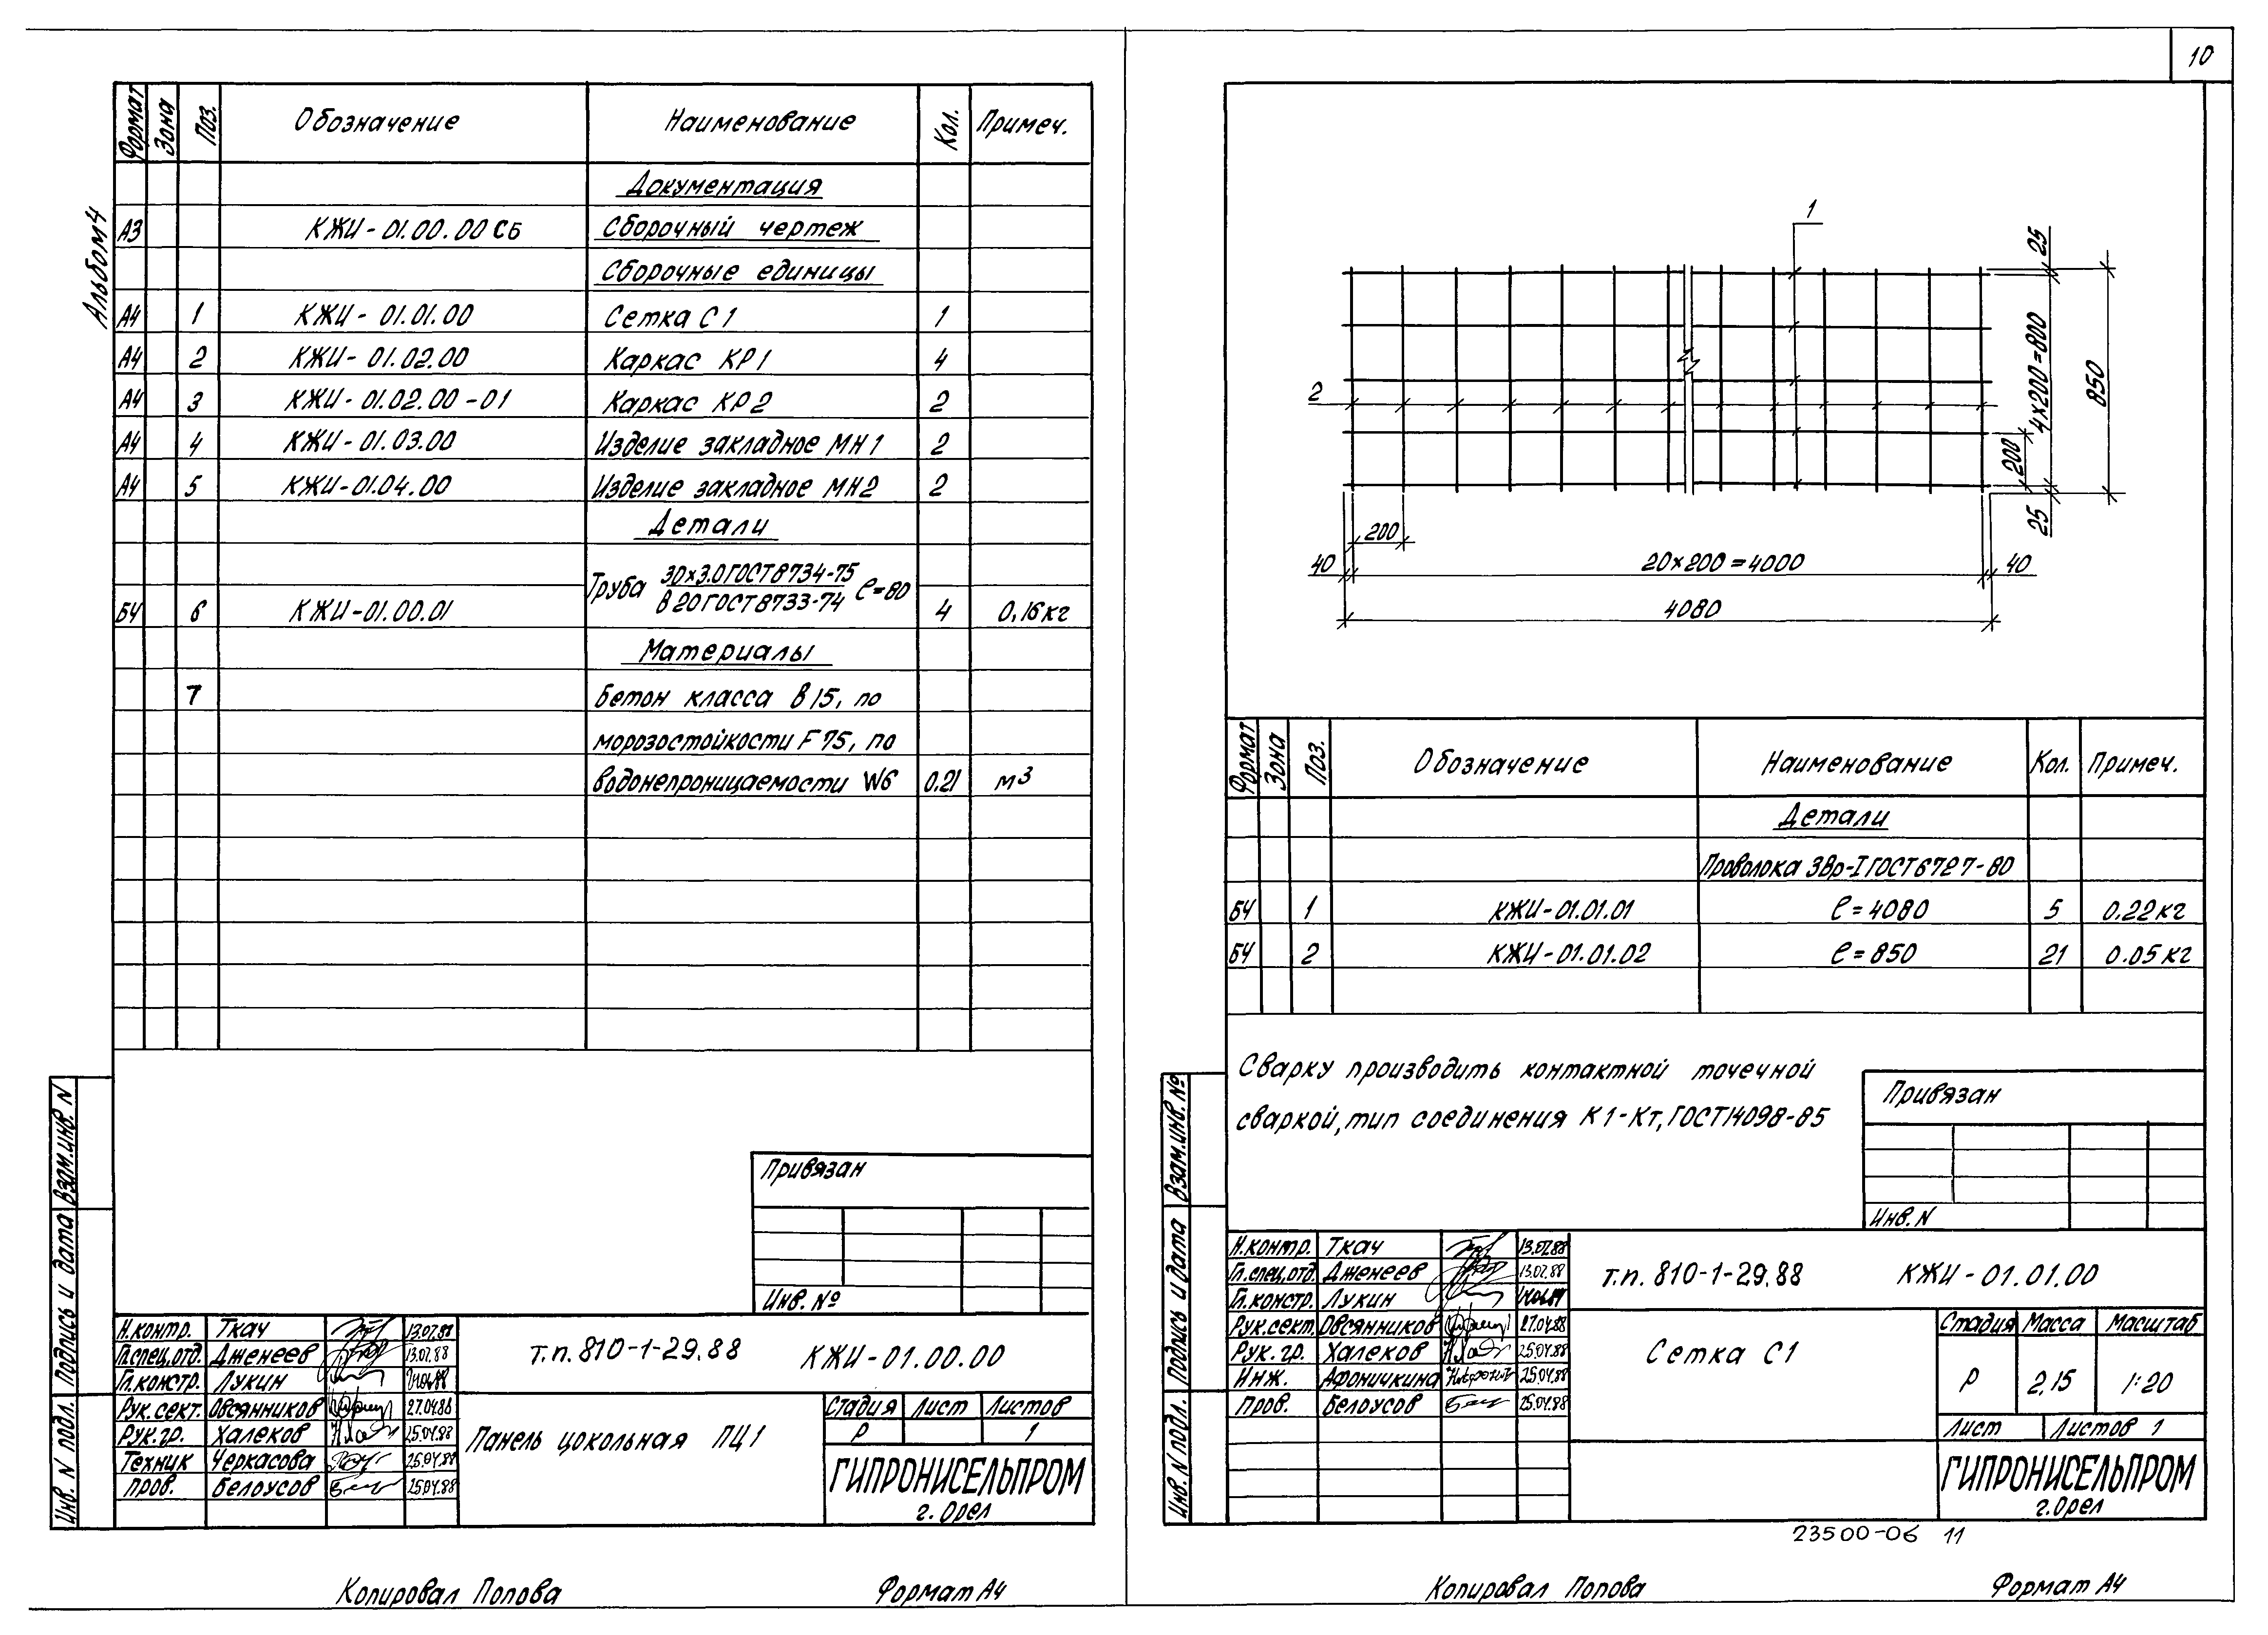 10
Альбом 4
Формат Зона Поз. Обозначение Наименование Кол. Примеч.
Документация
А3 КЖИ-01.00.00 СБ Сборочный чертеж
Сборочные единицы
А4 1 КЖИ-01.01.00 Сетка С1 1
А4 2 КЖИ-01.02.00 Каркас КР1 4
А4 3 КЖИ-01.02.00-01 Каркас КР2 2
А4 4 КЖИ-01.03.00 Изделие закладное МН1 2
А4 5 КЖИ-01.04.00 Изделие закладное МН2 2
Детали
Труба 30х3.0 ГОСТ 8734-75
В 20 ГОСТ 8733-74 ℓ=80
БЧ 6 КЖИ-01.00.01 4 0,16кг
Материалы
7 Бетон класса В15, по
морозостойкости F75, по
водонепроницаемости W6 0.21 м³
Привязан
Инв. №
Н.контр. Ткач 13.07.88
Гл.спец.отд. Дженеев 13.07.88
Гл.констр. Лукин
Рук.сект. Овсянников 27.04.88
Рук.гр. Халеков 25.04.88
Техник Черкасова 25.04.88
Пров. Белоусов 25.04.88
т.п. 810-1-29.88 КЖИ-01.00.00
Панель цокольная ПЦ1
Стадия Лист Листов
Р 1
ГИПРОНИСЕЛЬПРОМ
г. Орел
Инв. N подл. Подпись и дата Взам.инв. N
Копировал Попова Формат А4
1
2
25
4х200=800
850
200
25
200
40 20х200=4000 40
4080
Формат Зона Поз. Обозначение Наименование Кол. Примеч.
Детали
Проволока 3Вр-I ГОСТ 6727-80
БЧ 1 КЖИ-01.01.01 ℓ=4080 5 0.22кг
БЧ 2 КЖИ-01.01.02 ℓ=850 21 0.05кг
Сварку производить контактной точечной
сваркой, тип соединения К1-Кт, ГОСТ 14098-85
Привязан
Инв. N
Н.контр. Ткач 13.07.88
Гл.спец.отд. Дженеев 13.07.88
Гл.констр. Лукин
Рук.сект. Овсянников 27.04.88
Рук.гр. Халеков 25.04.88
Инж. Афоничкина 25.04.88
Пров. Белоусов 25.04.88
т.п. 810-1-29.88 КЖИ-01.01.00
Сетка С1
Стадия Масса Масштаб
Р 2,15 1:20
Лист Листов 1
ГИПРОНИСЕЛЬПРОМ
г. Орел
Инв. N подл. Подпись и дата Взам.инв. №
23500-06 11
Копировал Попова Формат А4